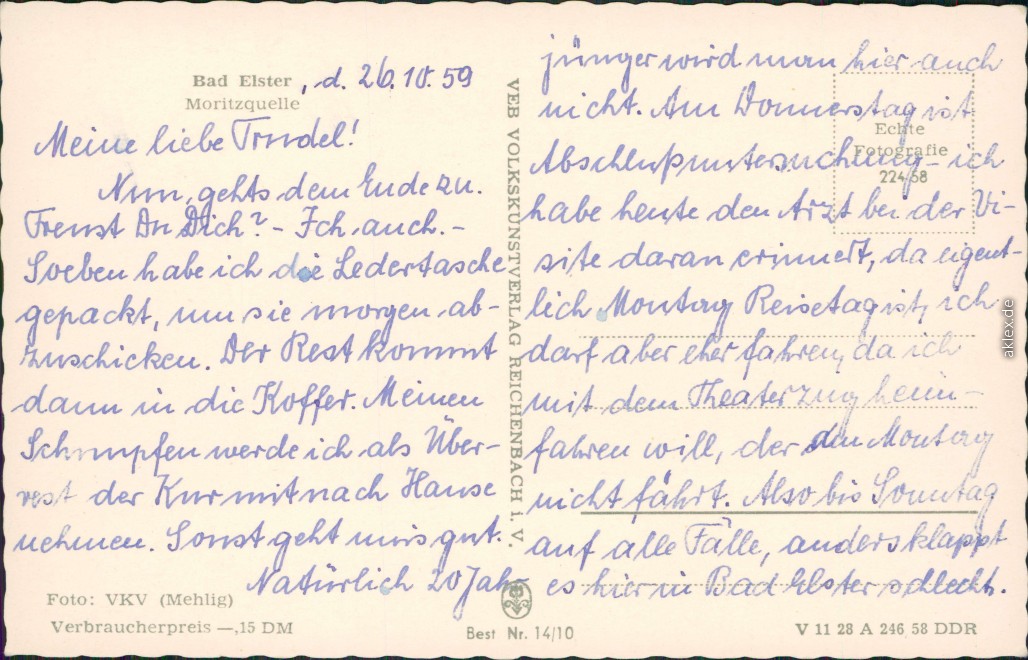 Bad Elster, d. 26.10.59
Moritzquelle
Meine liebe Trudel!
Nun, gehts dem Ende zu.
Freust Du Dich? - Ich auch. -
Soeben habe ich die Ledertasche
gepackt, um sie morgen ab-
zuschicken. Der Rest kommt
dann in die Koffer. Meinen
Schnupfen werde ich als Über-
rest der Kur mit nach Hause
nehmen. Sonst geht mirs gut.
Natürlich 20 Jahr
Foto: VKV (Mehlig)
Verbraucherpreis —,15 DM
VEB VOLKSKUNSTVERLAG REICHENBACH i. V.
Best Nr. 14/10
jünger wird man hier auch
nicht. Am Donnerstag ist
Abschlußuntersuchung - ich
habe heute den Arzt bei der Vi-
site daran erinnert, da eigent-
lich Montag Reisetag ist, ich
darf aber eher fahren, da ich
mit dem Theaterzug heim-
fahren will, der am Montag
nicht fährt. Also bis Sonntag
auf alle Fälle, anders klappt
es hier in Bad Elster schlecht.
Echte
Fotografie
224 58
V 11 28 A 246 58 DDR
aklex.de